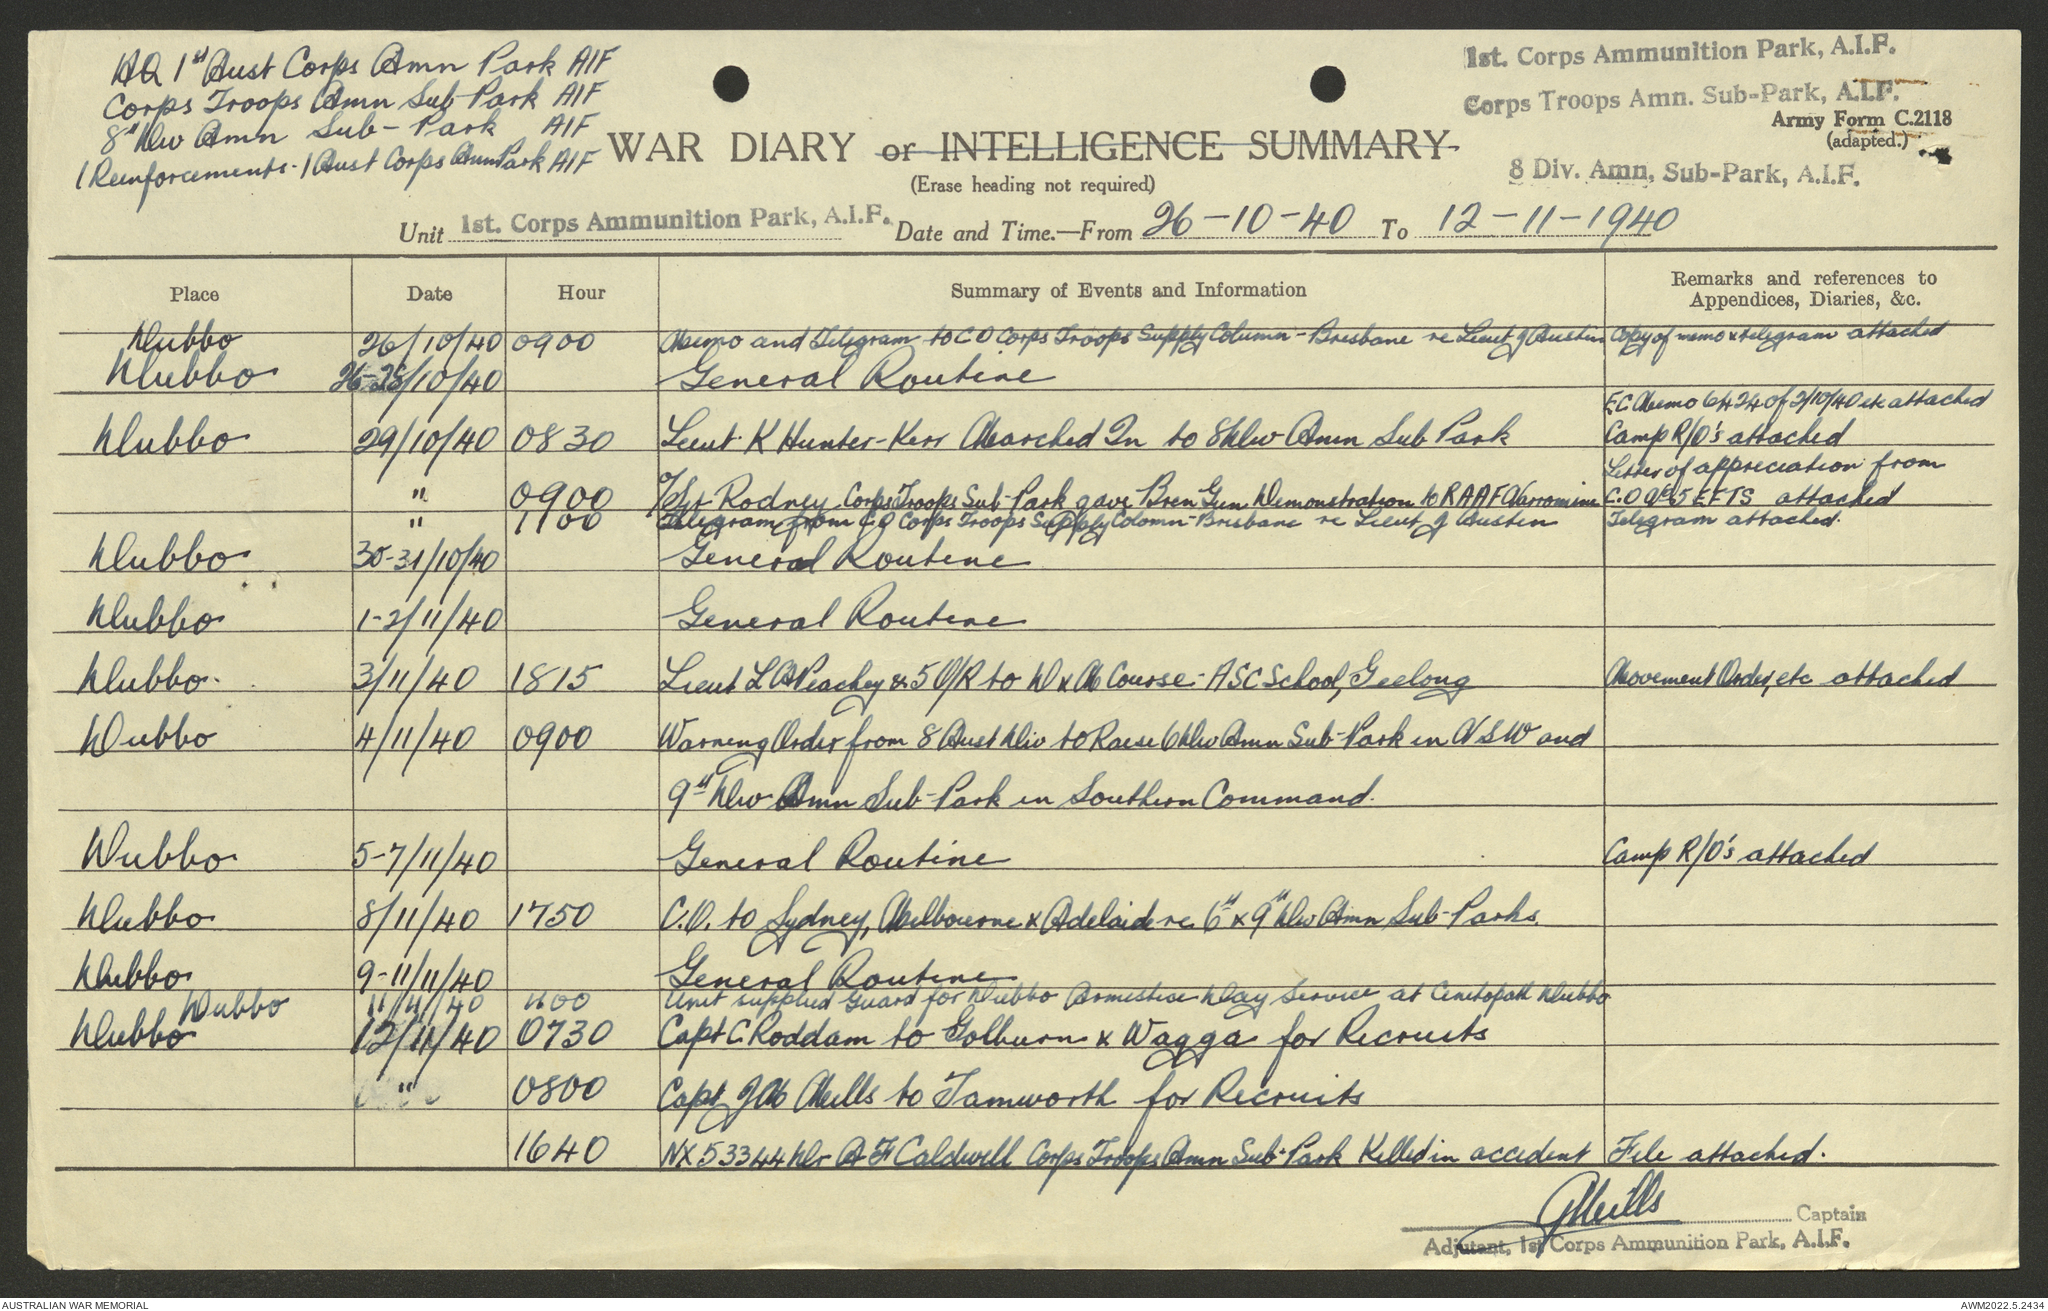 HQ 1st Aust Corps Amn Park AIF
Corps Troops Amn Sub-Park AIF
8th Div Amn Sub-Park AIF
1 Reinforcements - 1 Aust Corps Amn Park AIF
1st. Corps Ammunition Park, A.I.F.
Corps Troops Amn. Sub-Park, A.I.F.
Army Form C.2118
(adapted.)
8 Div. Amn, Sub-Park, A.I.F.
WAR DIARY or INTELLIGENCE SUMMARY.
(Erase heading not required)
Unit 1st. Corps Ammunition Park, A.I.F. Date and Time.—From 26-10-40 To 12-11-1940
Place Date Hour Summary of Events and Information Remarks and references to Appendices, Diaries, &c.
Dubbo 26/10/40 0900 Memo and Telegram to CO Corps Troops Supply Column - Brisbane re Lieut J Austin Copy of memo & telegram attached
Dubbo 26-28/10/40 General Routine
EC Memo 6424 of 2/10/40 etc attached
Dubbo 29/10/40 0830 Lieut K Hunter-Kerr Marched In to 8 Div Amn Sub Park Camp R/O's attached
Letter of appreciation from
" 0900 Rodney Corps Troops Sub-Park gave Bren Gun Demonstration to RAAF Narromine C.O 5 EFTS attached
" 1100 Telegram from CO Corps Troops Supply Colomn - Brisbane re Lieut J Austin Telegram attached.
Dubbo 30-31/10/40 General Routine
Dubbo 1-2/11/40 General Routine
Dubbo 3/11/40 1815 Lieut L A Peachey & 5 O/R to D & M Course - ASC School, Geelong Movement Order, etc attached
Dubbo 4/11/40 0900 Warning Order from 8 Aust Div to Raise 6 Div Amn Sub-Park in NSW and
9th Div Amn Sub-Park in Southern Command.
Dubbo 5-7/11/40 General Routine Camp R/O's attached
Dubbo 8/11/40 1750 C.O. to Sydney, Melbourne & Adelaide re 6th & 9th Div Amn Sub-Parks.
Dubbo 9-11/11/40 General Routine
Dubbo 11/11/40 1100 Unit supplied Guard for Dubbo Armistice Day Service at Cenetopath Dubbo
Dubbo 12/11/40 0730 Capt C. Roddam to Golburn & Wagga for Recruits
" 0800 Capt J M Mills to Tamworth for Recruits
1640 NX 53344 Dvr A F Caldwell Corps Troops Amn Sub-Park Killed in accident File attached.
JMills
Captain
Adjutant, 1st Corps Ammunition Park, A.I.F.
AUSTRALIAN WAR MEMORIAL
AWM2022.5.2434